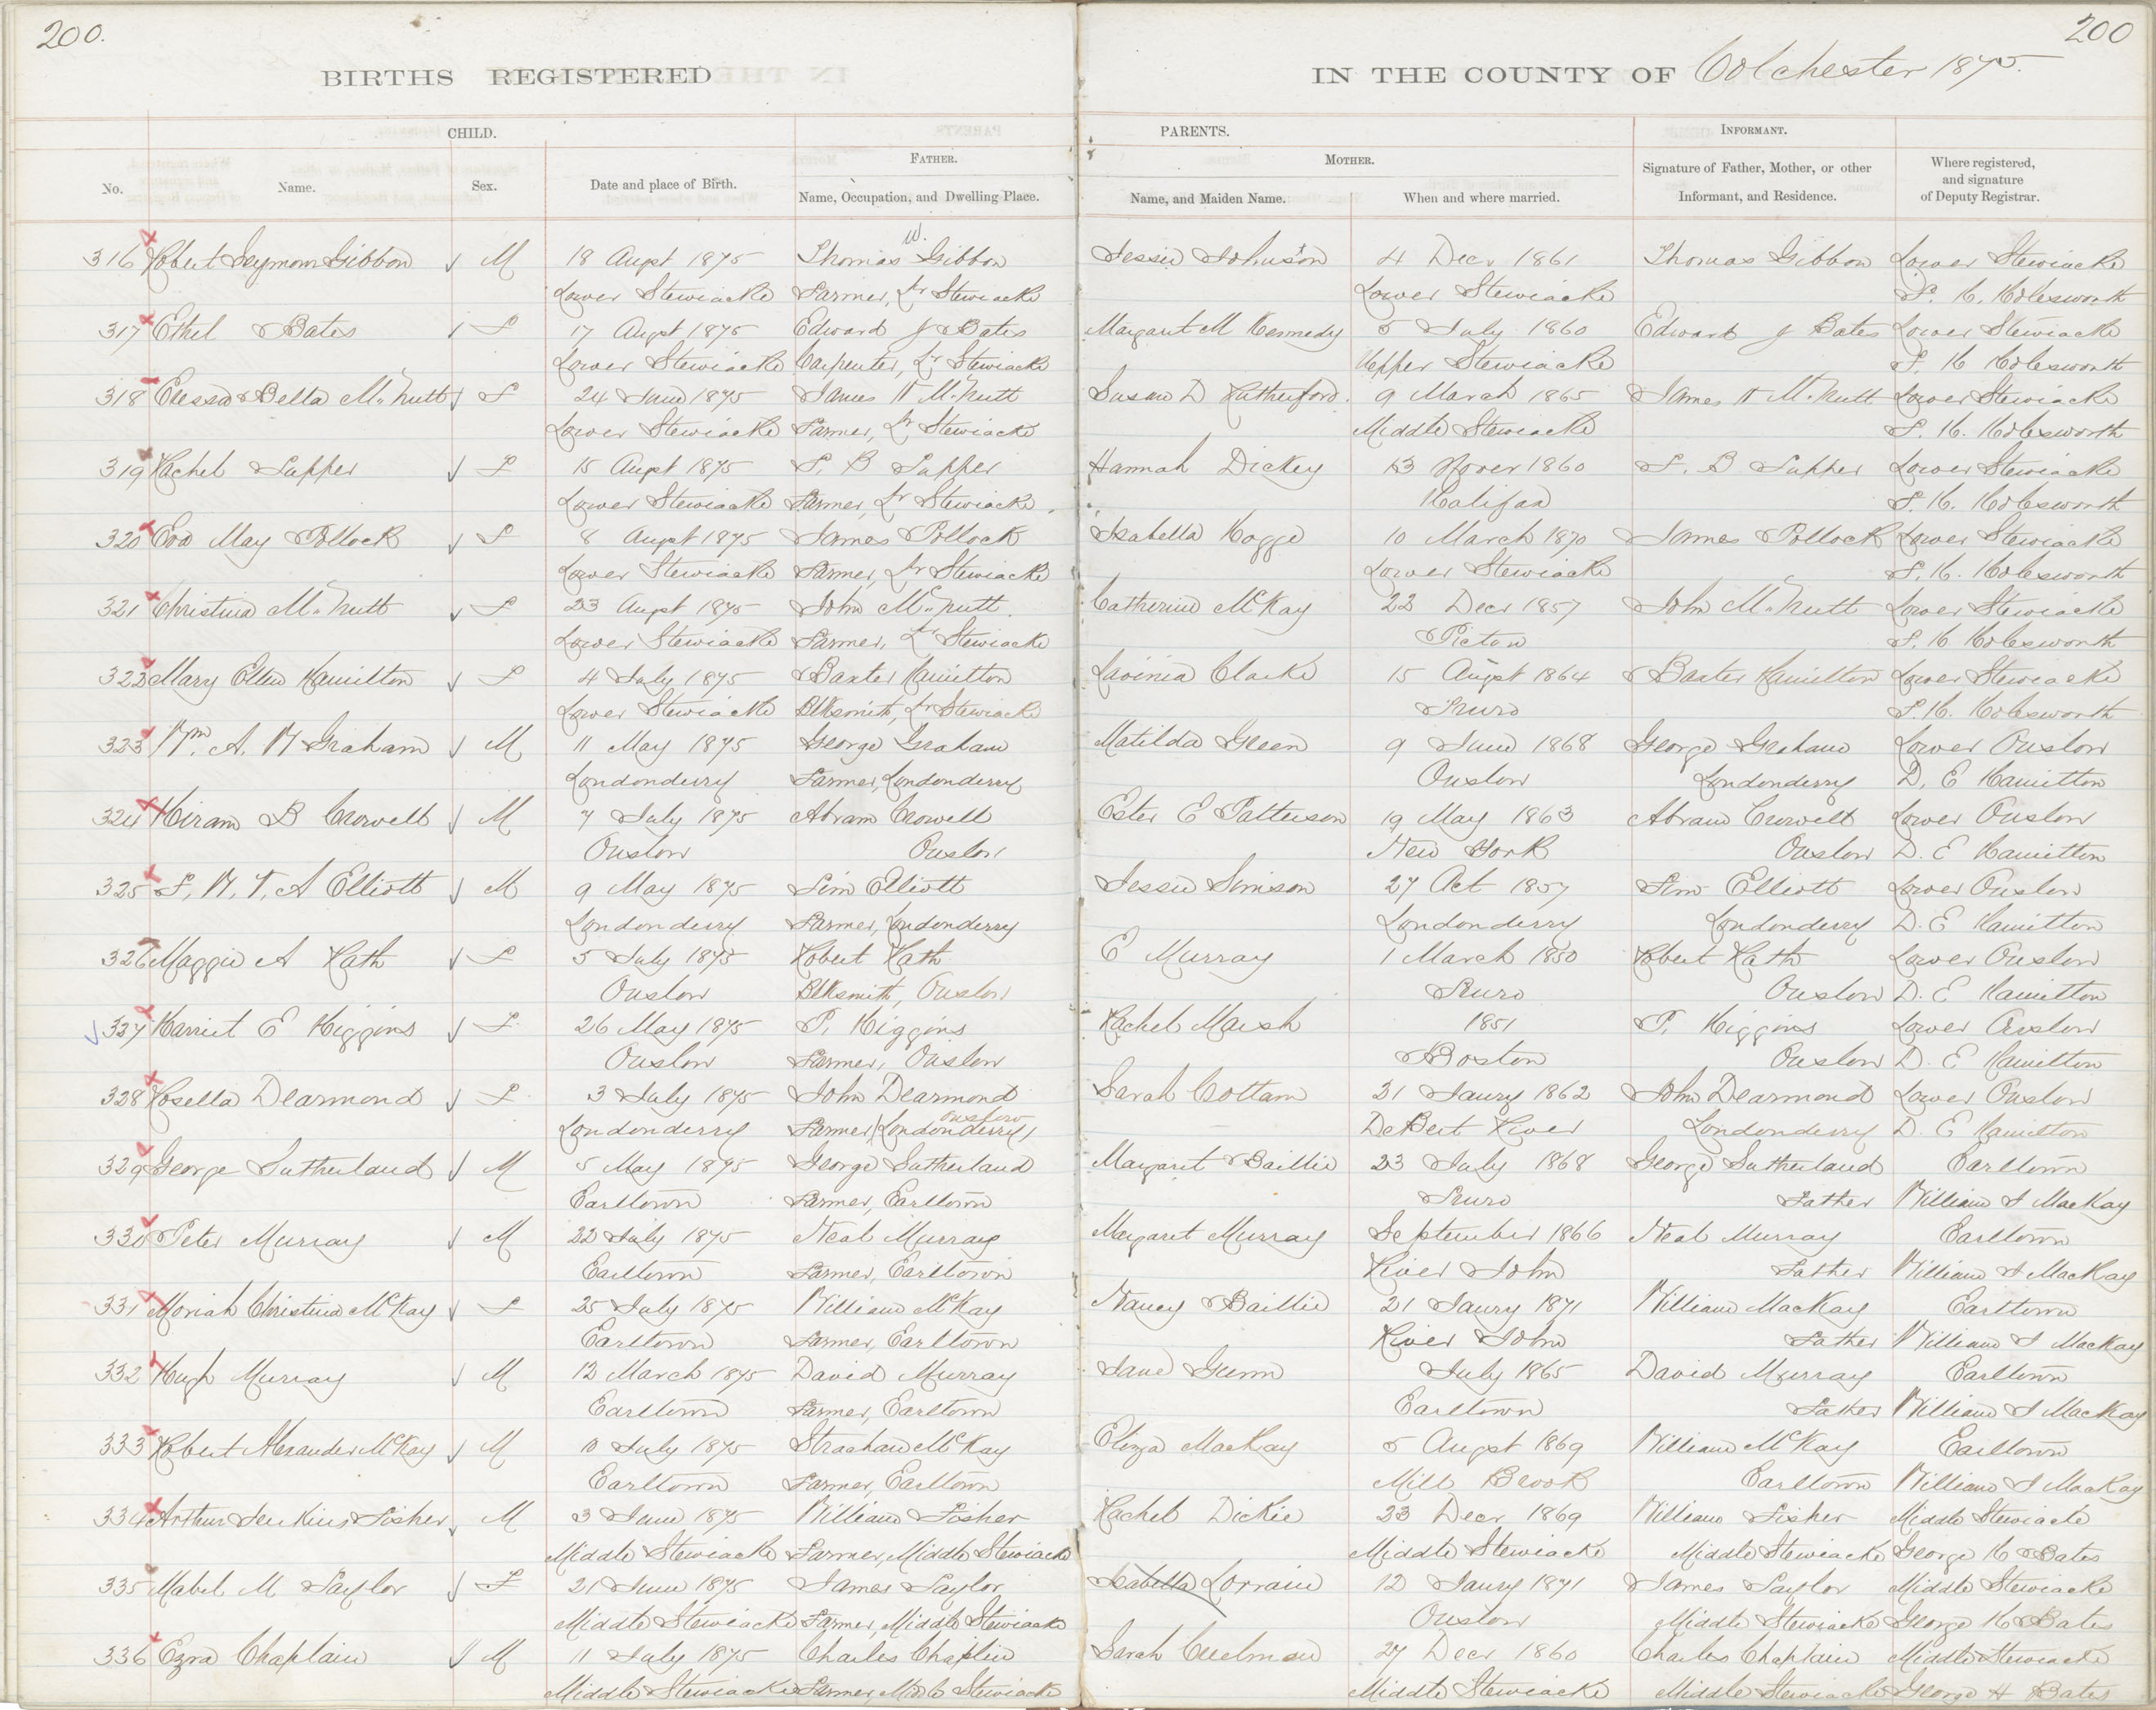 200.
200
BIRTHS REGISTERED
IN THE COUNTY OF Colchester 1875.
CHILD.
PARENTS.
INFORMANT.
FATHER.
MOTHER.
No.
Name.
Sex.
Date and place of Birth.
Name, Occupation, and Dwelling Place.
Name, and Maiden Name.
When and where married.
Signature of Father, Mother, or other
Informant, and Residence.
Where registered,
and signature
of Deputy Registrar.
W.
316 Robert Seymour Gibbon M 18 Augst 1875 Thomas Gibbon Jessie Johnson 4 Decr 1861 Thomas Gibbon Lower Stewiacke
Lower Stewiacke Farmer, Lr Stewiacke Lower Stewiacke F. H. Holesworth
317 Ethel Bates F 17 Augst 1875 Edward J Bates Margaret M Kennedy 5 July 1860 Edward J Bates Lower Stewiacke
Lower Stewiacke Carpenter, Lr Stewiacke Upper Stewiacke F. H Holesworth
318 Della McNutt F 24 June 1875 James W McNutt Susan D Rutherford. 9 March 1865 James W McNutt Lower Stewiacke
Lower Stewiacke Farmer, Lr Stewiacke Middle Stewiacke F. H. Holesworth
319 Rachel Tupper F 15 Augst 1875 F. B Tupper Hannah Dickey 13 Novr 1860 F. B Tupper Lower Stewiacke
Lower Stewiacke Farmer, Lr Stewiacke Halifax F. H. Holesworth
320 Eva May Pollock F 8 Augst 1875 James Pollock Isabella Hogge 10 March 1870 James Pollock Lower Stewiacke
Lower Stewiacke Farmer, Lr Stewiacke Lower Stewiacke F. H. Holesworth
321 Christina McNutt F 23 Augst 1875 John McNutt. Catherine McKay 22 Decr 1857 John McNutt Lower Stewiacke
Lower Stewiacke Farmer, Lr Stewiacke Pictou F. H. Holesworth
322 Mary Ellen Hamilton F 4 July 1875 Baxter Hamilton Lavinia Clarke 15 Augst 1864 Baxter Hamilton Lower Stewiacke
Lower Stewiacke Blksmith, Lr Stewiacke Truro F. H. Holesworth
323 Wm. A. W Graham M 11 May 1875 George Graham Matilda Green 9 June 1868 George Graham Lower Onslow
Londonderry Farmer, Londonderry Onslow Londonderry D. E Hamilton
324 Hiram B Crowell M 7 July 1875 Abram Crowell Ester E Patterson 19 May 1863 Abram Crowell Lower Onslow
Onslow Onslow New York Onslow D. E Hamilton
325 F. W. T. A Elliott M 9 May 1875 Sim Elliott Jessie Simison 27 Oct 1857 Sim Elliott Lower Onslow
Londonderry Farmer, Londonderry Londonderry Londonderry D. E Hamilton
326 Maggie A Rath F 5 July 1875 Robert Rath E Murray 1 March 1850 Robert Rath Lower Onslow
Onslow Blksmith, Onslow Truro Onslow D. E Hamilton
327 Harriet E Higgins F 26 May 1875 P. Higgins Rachel Marsh 1851 P. Higgins Lower Onslow
Onslow Farmer, Onslow Boston Onslow D. E Hamilton
328 Rosella Dearmond F 3 July 1875 John Dearmond Sarah Cottam 31 Jaury 1862 John Dearmond Lower Onslow
Onslow
Londonderry Farmer (Londonderry) DeBert River Londonderry D. E Hamilton
329 George Sutherland M 5 May 1875 George Sutherland Margaret Baillie 23 July 1868 George Sutherland Earltown
Earltown Farmer, Earltown Truro Father William J MacKay
330 Peter Murray M 22 July 1875 Neal Murray Margaret Murray September 1866 Neal Murray Earltown
Earltown Farmer, Earltown River John Father William J MacKay
331 Moriah Christina McKay F 25 July 1875 William McKay Nancy Baillie 21 Jaury 1871 William MacKay Earltown
Earltown Farmer, Earltown River John Father William J MacKay
332 Hugh Murray M 12 March 1875 David Murray Jane Gunn July 1865 David Murray Earltown
Earltown Farmer, Earltown Earltown Father William J MacKay
333 Robert Alexander McKay M 10 July 1875 Strachan McKay Eliza MacKay 5 Augst 1869 William McKay Earltown
Earltown Farmer, Earltown Mill Brook Earltown William J MacKay
334 Arthur Jenkins Fisher M 3 June 1875 William Fisher Rachel Dickie 23 Decr 1869 William Fisher Middle Stewiacke
Middle Stewiacke Farmer, Middle Stewiacke Middle Stewiacke Middle Stewiacke George H Bates
335 Mabel M Taylor F 21 June 1875 James Taylor Isabella Lorrain 12 Jaury 1871 James Taylor Middle Stewiacke
Middle Stewiacke Farmer, Middle Stewiacke Onslow Middle Stewiacke George H Bates
336 Ezra Chaplain M 11 July 1875 Charles Chaplin Sarah Creelman 27 Decr 1860 Charles Chaplain Middle Stewiacke
Middle Stewiacke Farmer, Middle Stewiacke Middle Stewiacke Middle Stewiacke George H Bates